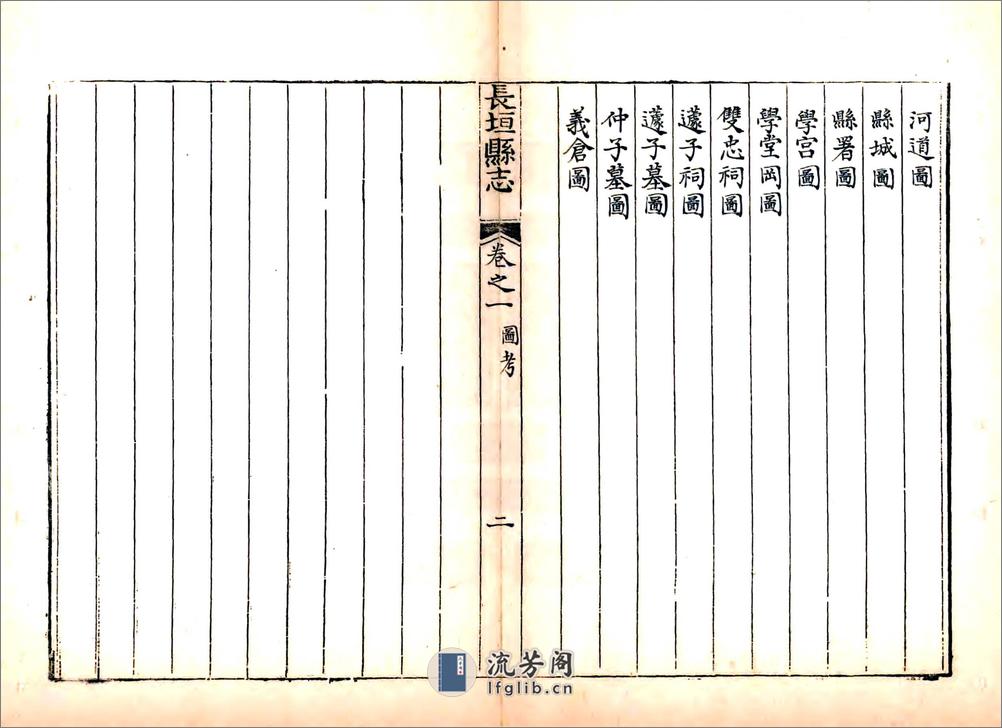 河道圖
縣城圖
縣署圖
學宮圖
學堂岡圖
雙忠祠圖
蘧子祠圖
蘧子墓圖
仲子墓圖
義倉圖
長垣縣志
卷之一
圖考
二
流芳阁
lfglib.cn